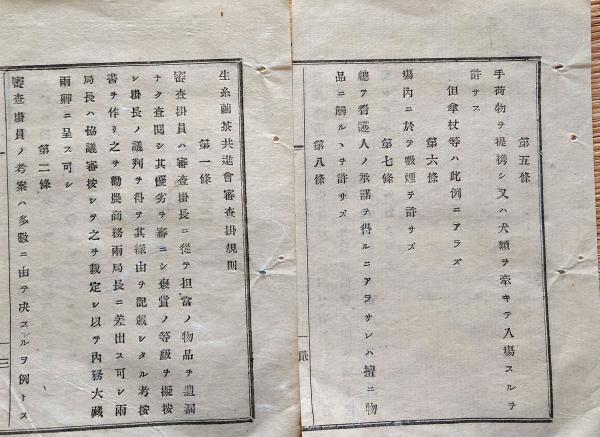 第五條
手荷物ヲ提携シ又ハ犬類ヲ牽キテ入塲スルヲ
許サス
但傘杖等ハ此例ニアラズ
第六條
塲内ニ於テ吸煙ヲ許サズ
第七條
總テ看護人ノ承諾ヲ得ルニアラサレハ擅ニ物
品ニ觸ルヽヲ許サズ
第八條
生糸繭茶共進會審査掛規則
第一條
審査掛員ハ審査掛長ニ從テ担當ノ物品ヲ遺漏
ナク査閲シ其優劣ヲ審ニシ褒賞ノ等級ヲ擬按
シ掛長ノ議判ヲ得テ其縁由ヲ記載シタル考按
書ヲ作リ之ヲ勸農商務兩局長ニ差出ス可シ兩
局長ハ協議審按シヲ之ヲ裁定シ以テ内務大藏
兩卿ニ呈ス可シ
第二條
審査掛員ノ考案ハ多數ニ由テ决スルヲ例トス